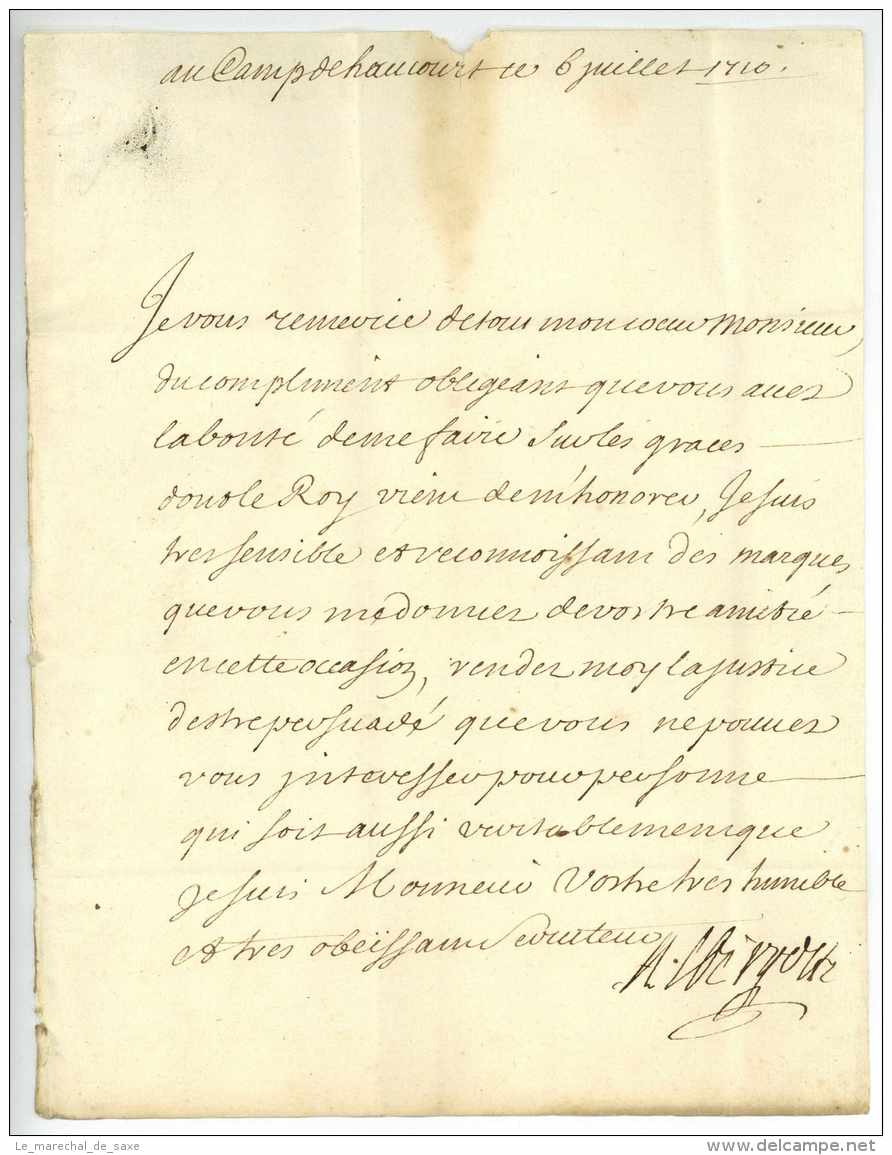 au Camp de haucourt ce 6 juillet 1710.
Je vous remercie de tout mon coeur Monsieur,
du compliment obligeant que vous avez
la bonté de me faire sur les graces
dont le Roy vient de m'honorer, Je suis
tres sensible et reconnoissant des marques
que vous me donnez de vostre amitié
en cette occasion, rendez moy la justice
destre persuadé que vous ne pouvez
vous jnteresser pour personne
qui soit aussi veritablement que
je suis Monsieur Vostre tres humble
et tres obeïssant serviteur
Albergotti
Le_marechal_de_saxe
www.delcampe.net